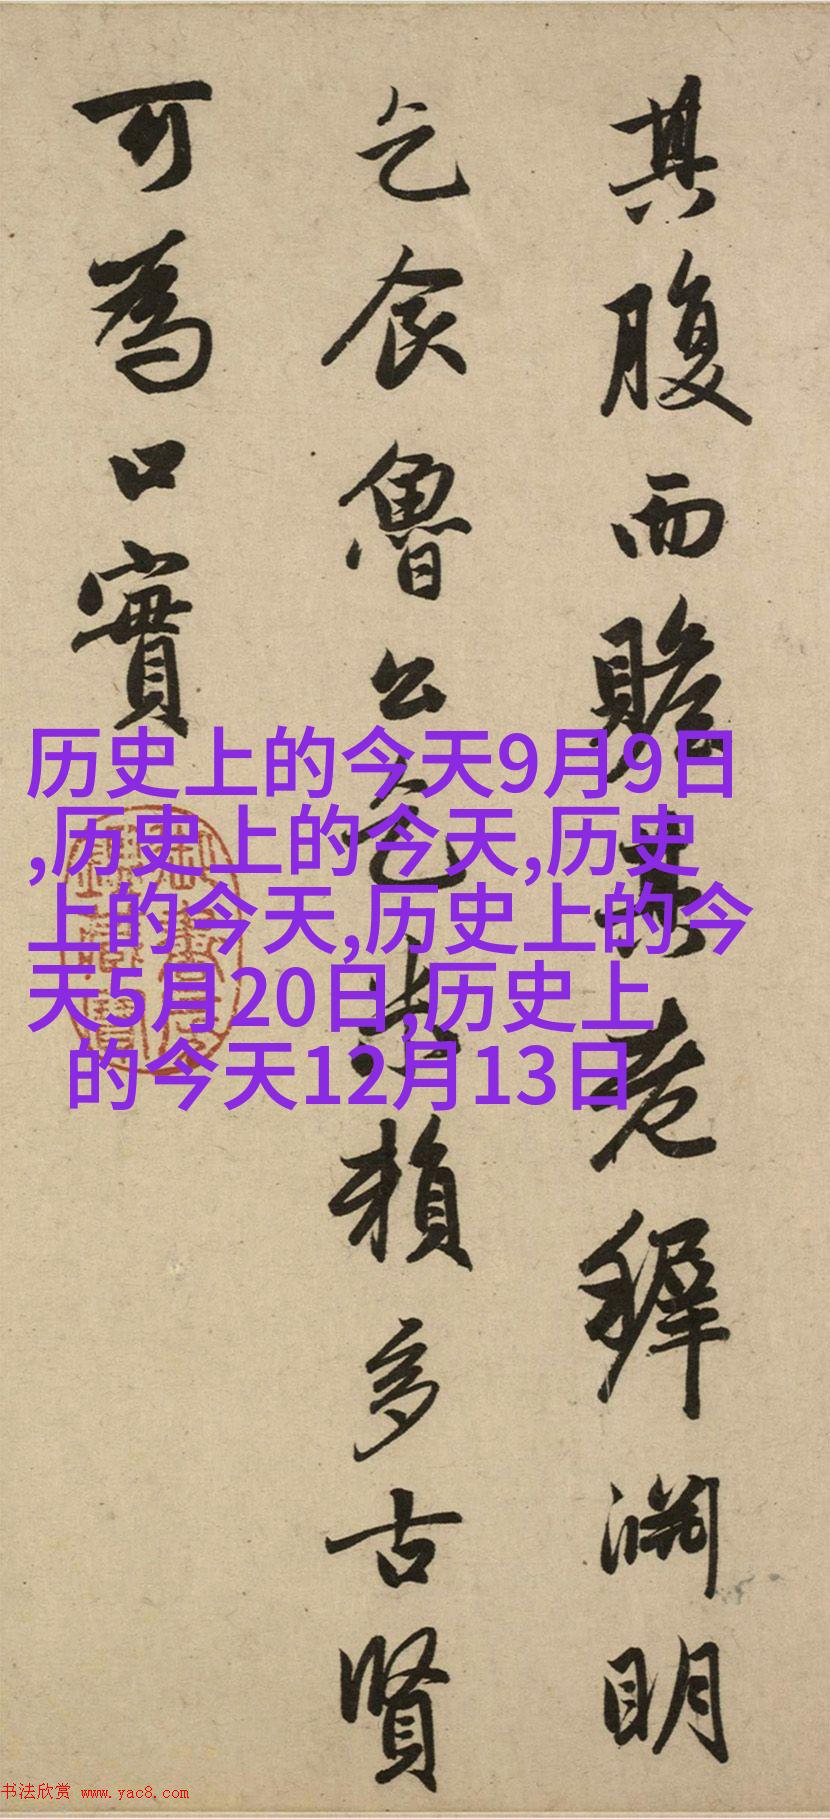 其腹而贍其老稺淵明
乞食魯公乞米賴多古賢
可為口實
历史上的今天9月9日
,历史上的今天,历史
上的今天,历史上的今
天5月20日,历史上
的今天12月13日
书法欣赏 www.yac8.com